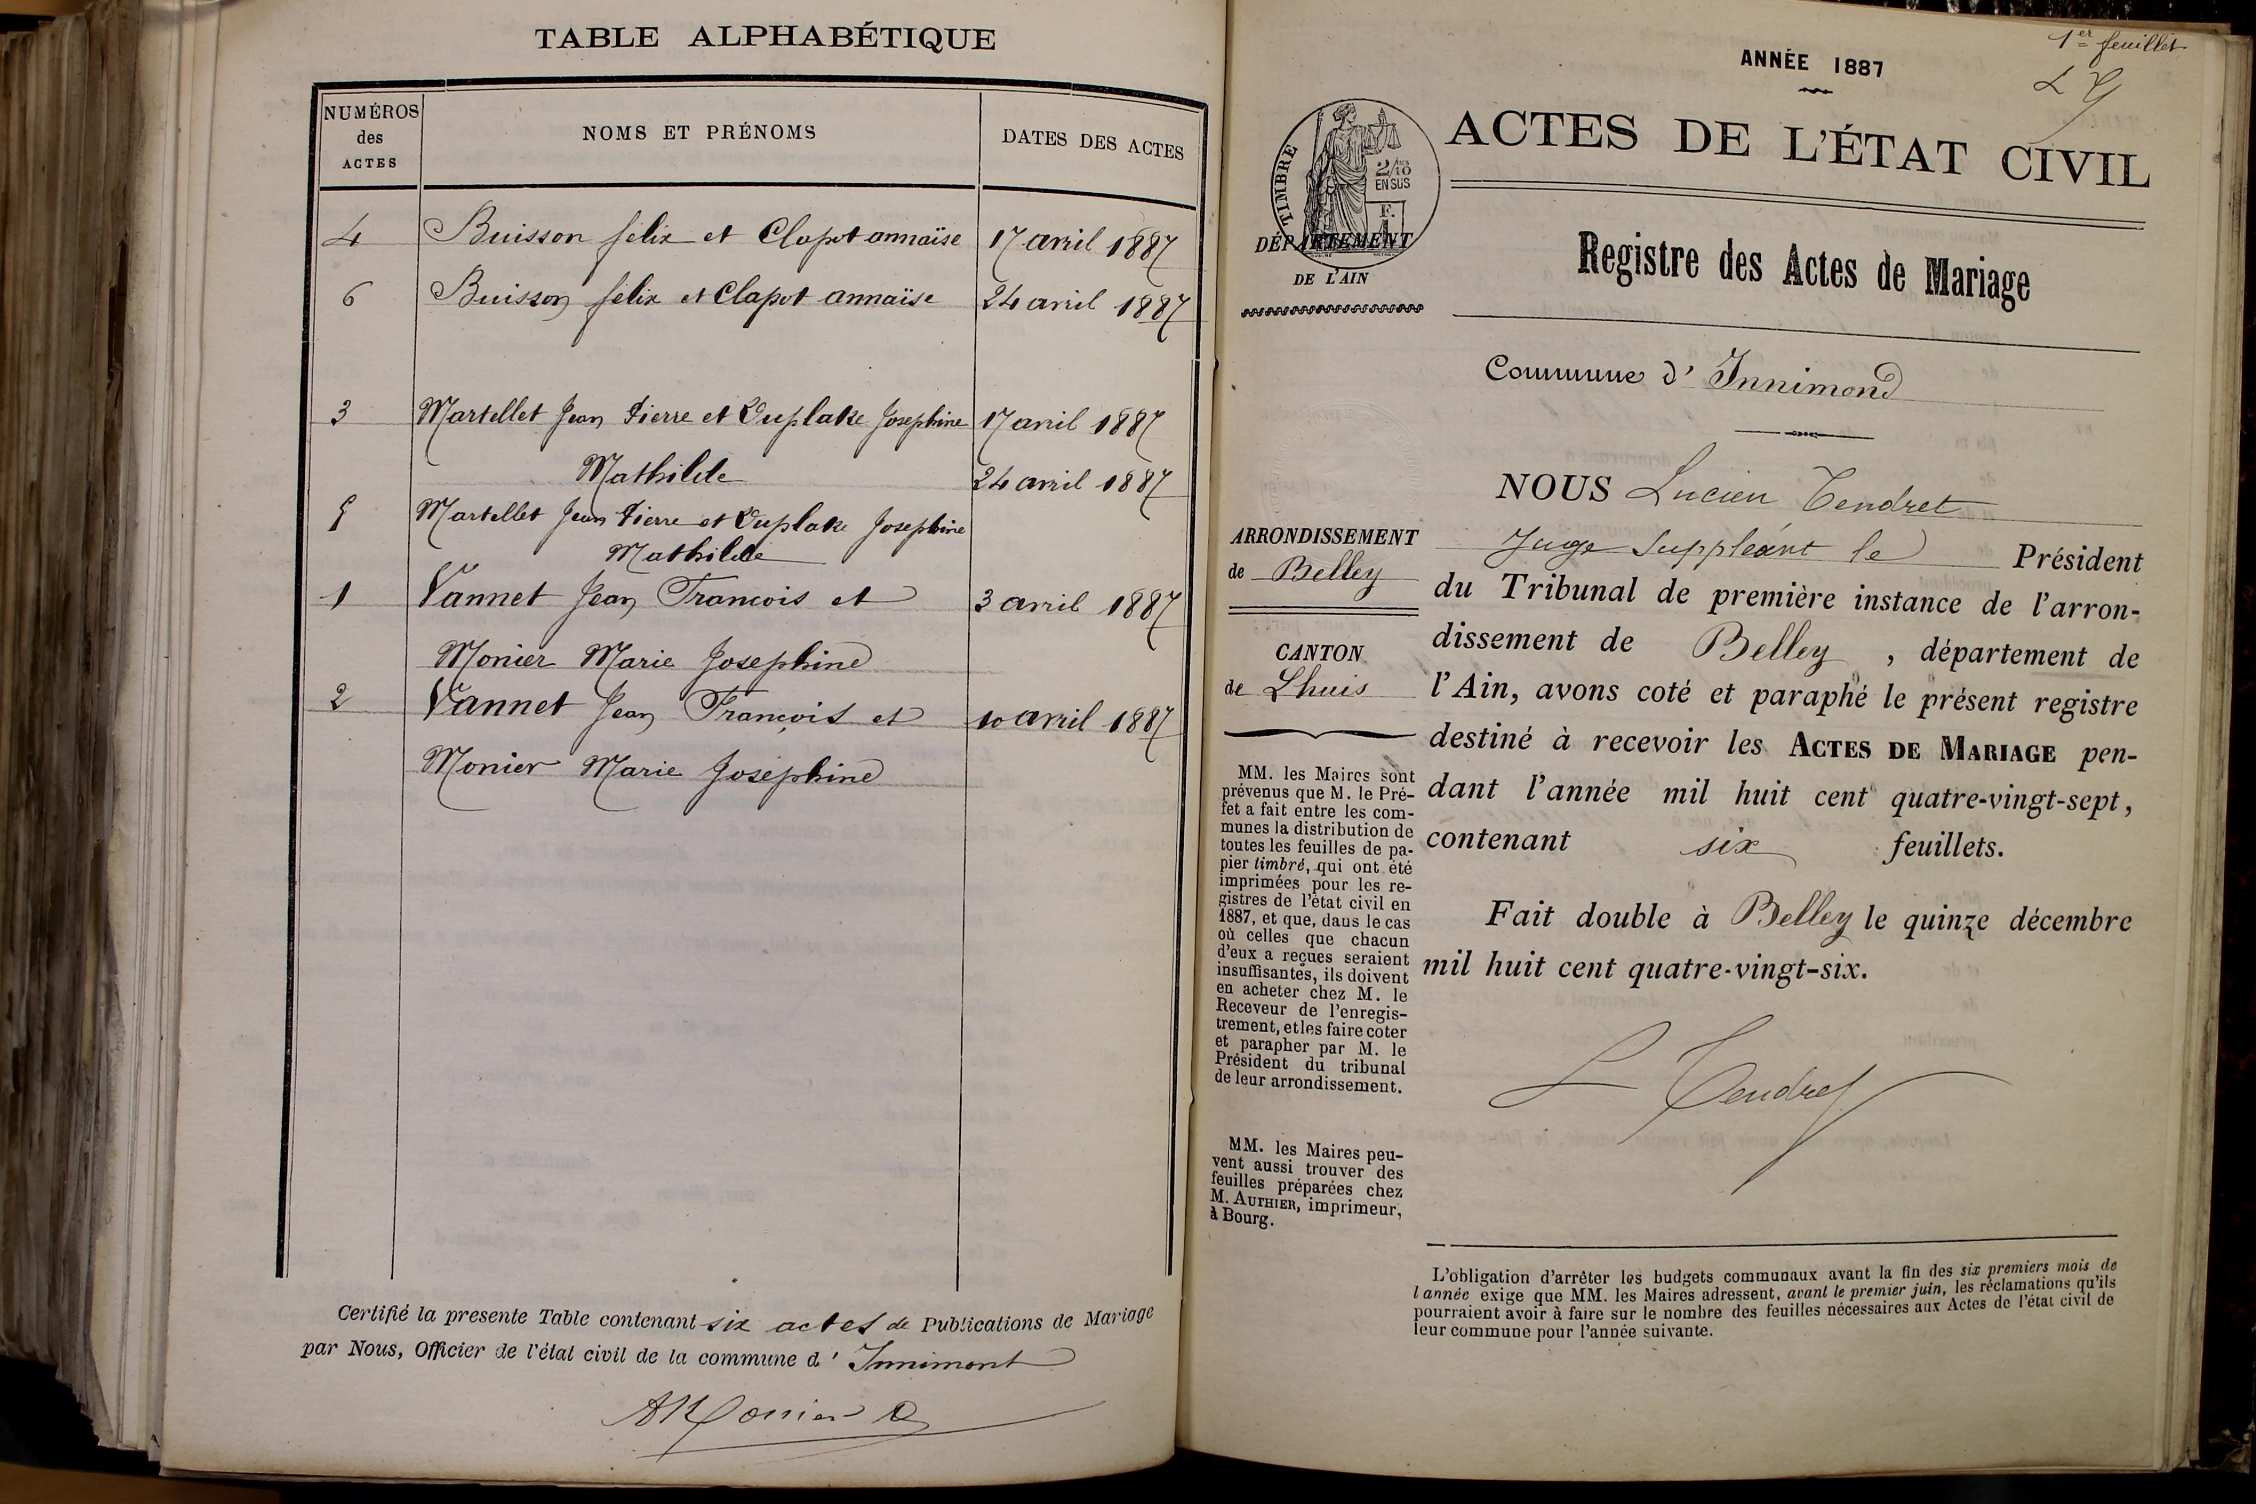 TABLE ALPHABÉTIQUE
NUMÉROS
des
ACTES
NOMS ET PRÉNOMS
DATES DES ACTES
4 Buisson felix et Clapot annaïse 17 avril 1887
6 Buisson felix et Clapot annaïse 24 avril 1887
3 Martellet Jean Pierre et Duplatre Josephine 17 avril 1887
Mathilde 24 avril 1887
5 Martellet Jean Pierre et Duplatre Josephine
Mathilde
1 Vannet Jean Francois et 3 avril 1887
Monier Marie Josephine
2 Vannet Jean François et 10 avril 1887
Monier Marie Joséphine
Certifié la presente Table contenant six actes de Publications de Mariage
par Nous, Officier de l'état civil de la commune d' Innimont
AMonier
1er feuillet
LT
ANNÉE 1887
TIMBRE
2/10
EN SUS
F.
1
ACTES DE L'ÉTAT CIVIL
DÉPARTEMENT
DE L'AIN
Registre des Actes de Mariage
Commune d' Innimond
ARRONDISSEMENT
de Belley
CANTON
de Lhuis
MM. les Maires sont
prévenus que M. le Pré-
fet a fait entre les com-
munes la distribution de
toutes les feuilles de pa-
pier timbré, qui ont été
imprimées pour les re-
gistres de l'état civil en
1887, et que, dans le cas
où celles que chacun
d'eux a reçues seraient
insuffisantes, ils doivent
en acheter chez M. le
Receveur de l'enregis-
trement, et les faire coter
et parapher par M. le
Président du tribunal
de leur arrondissement.
MM. les Maires peu-
vent aussi trouver des
feuilles préparées chez
M. AUTHIER, imprimeur,
à Bourg.
NOUS Lucien Tendret
Juge Suppléant le Président
du Tribunal de première instance de l'arron-
dissement de Belley, département de
l'Ain, avons coté et paraphé le présent registre
destiné à recevoir les ACTES DE MARIAGE pen-
dant l'année mil huit cent quatre-vingt-sept,
contenant six feuillets.
Fait double à Belley le quinze décembre
mil huit cent quatre-vingt-six.
L Tendret
L'obligation d'arrêter les budgets communaux avant la fin des six premiers mois de
l'année exige que MM. les Maires adressent, avant le premier juin, les réclamations qu'ils
pourraient avoir à faire sur le nombre des feuilles nécessaires aux Actes de l'état civil de
leur commune pour l'année suivante.